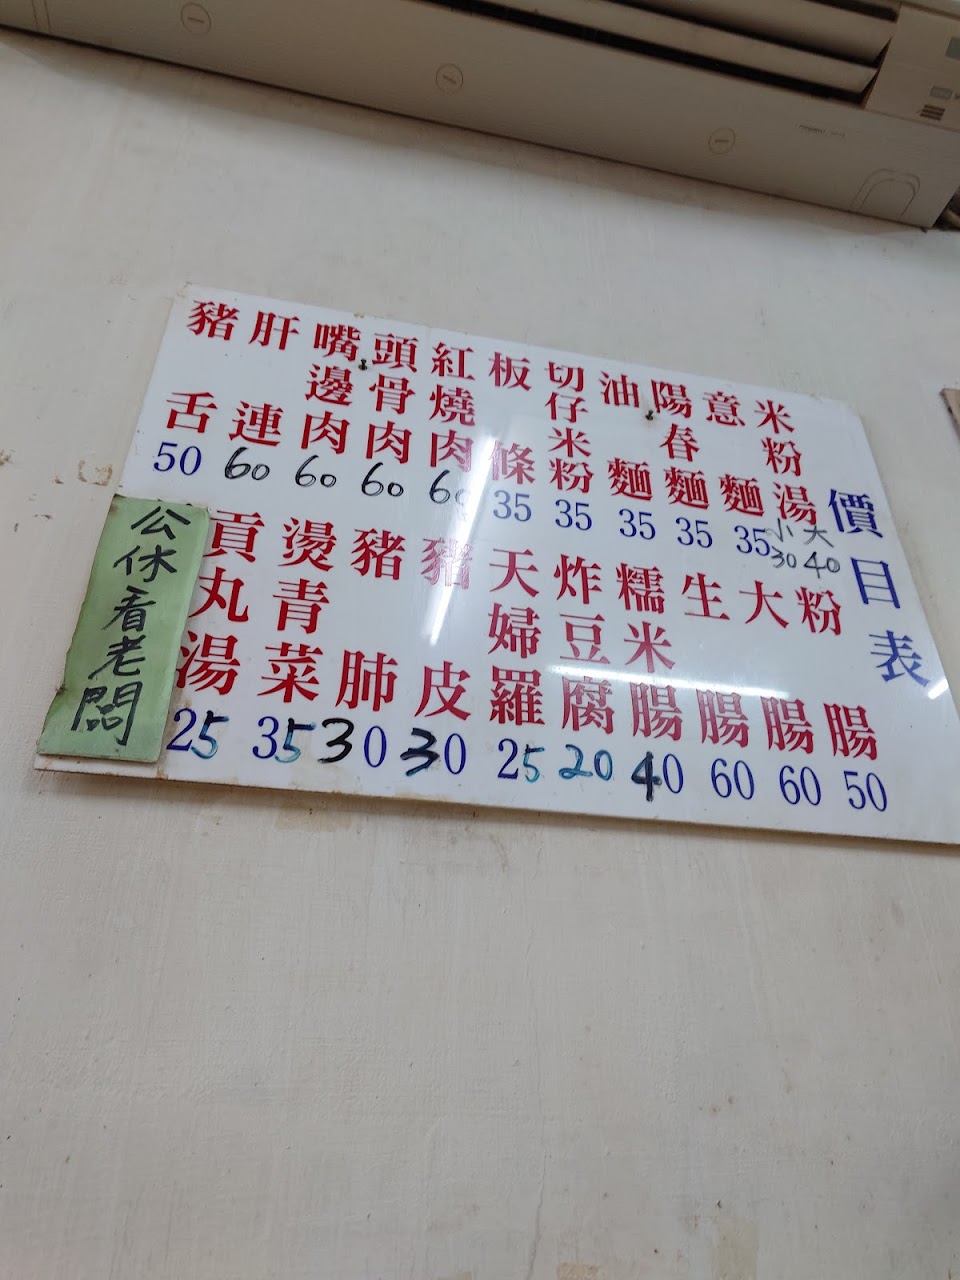 價目表
米粉湯 小30 大40
意麵 35
陽春麵 35
油麵 35
切仔米粉 35
板條 35
紅燒肉 60
頭骨肉 60
嘴邊肉 60
肝連 60
豬舌 50
粉腸 50
大腸 60
生腸 60
糯米腸 40
炸豆腐 20
天婦羅 25
豬皮 30
豬肺 30
燙青菜 35
貢丸湯 25
公休看老闆